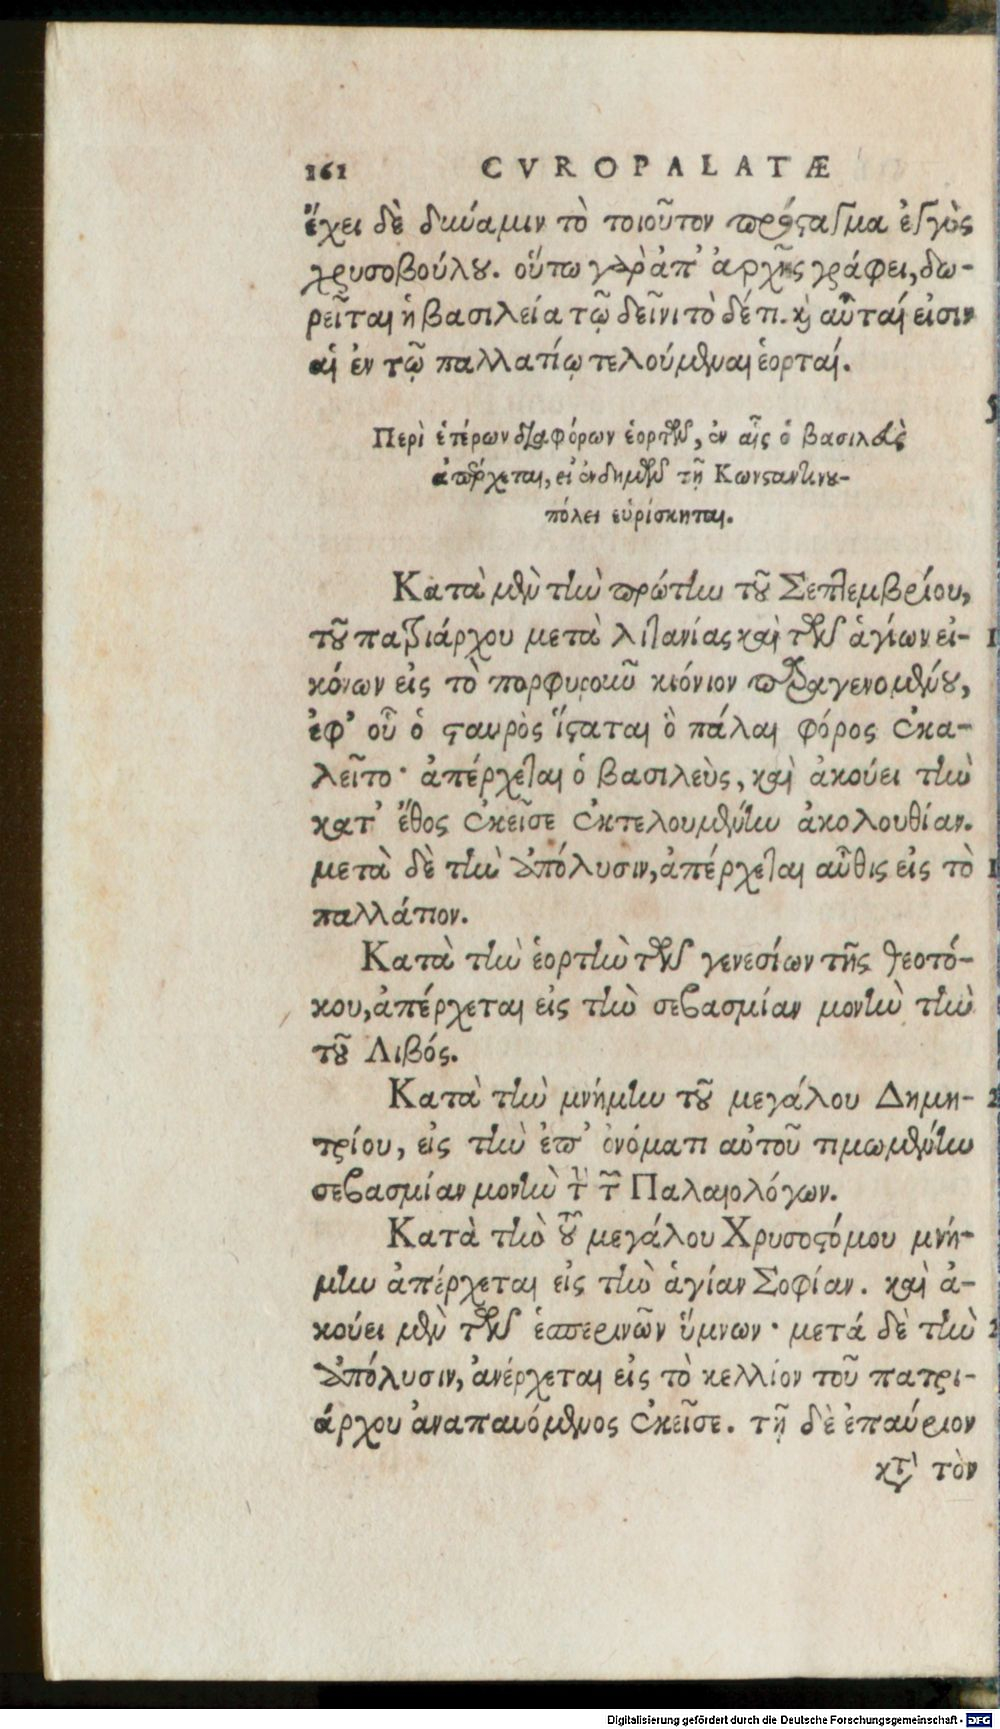 161 CVROPALATÆ
ἔχει δὲ δύναμιν τὸ τοιοῦτον πρόσταγμα ἐγγὺς
χρυσοβούλου. οὕτω γὰρ ἀπ' ἀρχῆς γράφει, δω-
ρεῖται ἡ βασιλεία τῷ δεῖνι τὸ δέ τι. καὶ αὗταί εἰσιν
αἱ ἐν τῷ παλλατίῳ τελούμεναι ἑορταί.
Περὶ ἑτέρων διαφόρων ἑορτῶν, ἐν αἷς ὁ βασιλεὺς
ἀπέρχεται, εἰ ἐνδημῶν τῇ Κωνσταντινου-
πόλει εὑρίσκηται.
Κατὰ μὲν τὴν πρώτην τοῦ Σεπτεμβρίου,
τοῦ πατριάρχου μετὰ λιτανίας καὶ τῶν ἁγίων εἰ-
κόνων εἰς τὸ πορφυροῦν κιόνιον παραγενομένου,
ἐφ' οὗ ὁ σταυρὸς ἵσταται ὃ πάλαι φόρος ἐκα-
λεῖτο· ἀπέρχεται ὁ βασιλεὺς, καὶ ἀκούει τὴν
κατ' ἔθος ἐκεῖσε ἐκτελουμένην ἀκολουθίαν.
μετὰ δὲ τὴν ἀπόλυσιν, ἀπέρχεται αὖθις εἰς τὸ
παλλάτιον.
Κατὰ τὴν ἑορτὴν τῶν γενεσίων τῆς θεοτό-
κου, ἀπέρχεται εἰς τὴν σεβασμίαν μονὴν τὴν
τοῦ Λιβός.
Κατὰ τὴν μνήμην τοῦ μεγάλου Δημη-
τρίου, εἰς τὴν ἐπ' ὀνόματι αὐτοῦ τιμωμένην
σεβασμίαν μονὴν τὴν τῶν Παλαιολόγων.
Κατὰ τὴν τοῦ μεγάλου Χρυσοστόμου μνή-
μην ἀπέρχεται εἰς τὴν ἁγίαν Σοφίαν. καὶ ἀ-
κούει μὲν τῶν ἑσπερινῶν ὕμνων· μετά δὲ τὴν
ἀπόλυσιν, ἀνέρχεται εἰς τὸ κελλίον τοῦ πατρι-
άρχου ἀναπαυόμενος ἐκεῖσε. τῇ δὲ ἐπαύριον
κατὰ τὸν
Digitalisierung gefördert durch die Deutsche Forschungsgemeinschaft - DFG